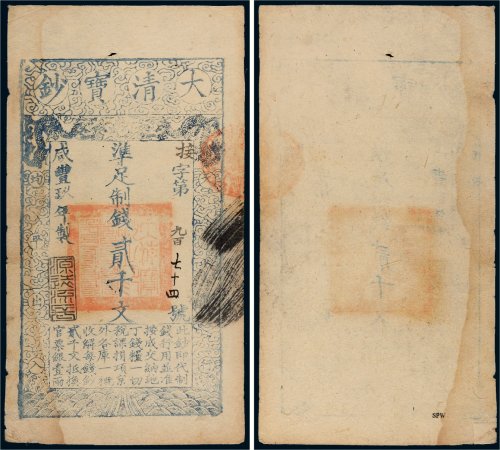 大清寶鈔
接字第九百七十四號
準足制錢貳千文
咸豐年製
此鈔即代制
錢行用並准
按成交納地
丁錢糧一切
稅課捐項京
外各庫一概
收解每錢鈔
貳千文抵換
官票銀壹兩
SPW